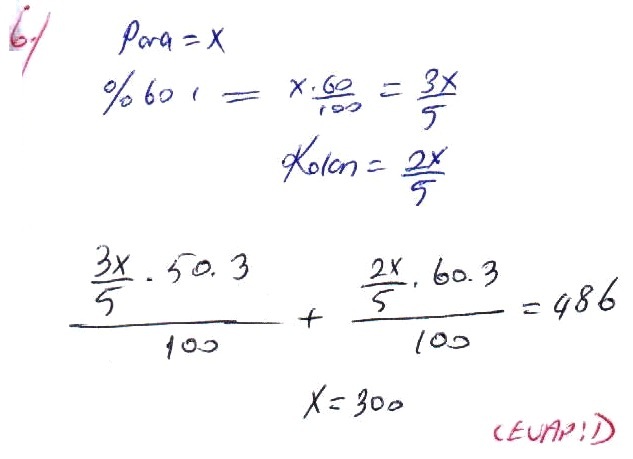 6-)
Para = x
%60ı = x·60/100 = 3x/5
Kalan = 2x/5
(3x/5 · 50.3)/100 + (2x/5 · 60.3)/100 = 486
x = 300
CEVAP: D